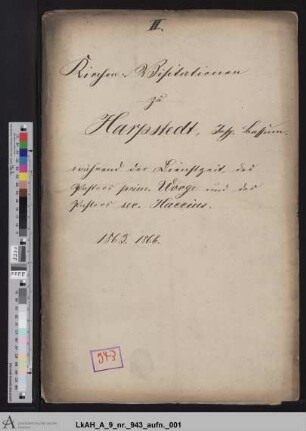 II.
Kirchen-Visitationen
zu
Harpstedt, Insp. Bassum.
während der Dienstzeit des
Pastors prim. Woge und des
Pastors sec. Haccius.
1863. 1866.
943
LkAH_A_9_nr._943_aufn._001